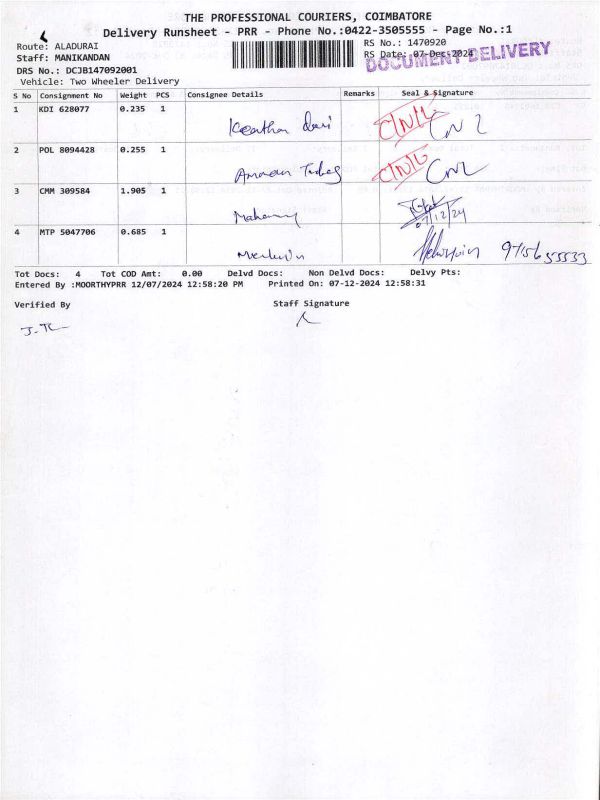 THE PROFESSIONAL COURIERS, COIMBATORE
Delivery Runsheet - PRR - Phone No.:0422-3505555 - Page No.:1
Route: ALADURAI
RS No.: 1470920
Staff: MANIKANDAN
RS Date: 07-Dec-2024
DOCUMENT DELIVERY
DRS No.: DCJB147092001
Vehicle: Two Wheeler Delivery
S No Consignment No Weight PCS Consignee Details Remarks Seal & Signature
1 KDI 628077 0.235 1
2 POL 8094428 0.255 1
3 CMM 309584 1.905 1
07/12/24
4 MTP 5047706 0.685 1
Tot Docs: 4 Tot COD Amt: 0.00 Delvd Docs: Non Delvd Docs: Delvy Pts:
Entered By :MOORTHYPRR 12/07/2024 12:58:20 PM Printed On: 07-12-2024 12:58:31
Verified By Staff Signature